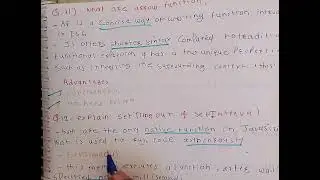 Q.11) what are arrow function,
- AF is a concise way of writing function intro
in ES6
- It offers shorter syntax compared to traditi
functional expression & has a two unique Properti
such as inheriting the surrounding context thi
Advantages
Q12. explain setTimeout & setInterval
- that are the only native function in Javascri
that is used to run code asynchronously
- this method executes a function, after wait
specified